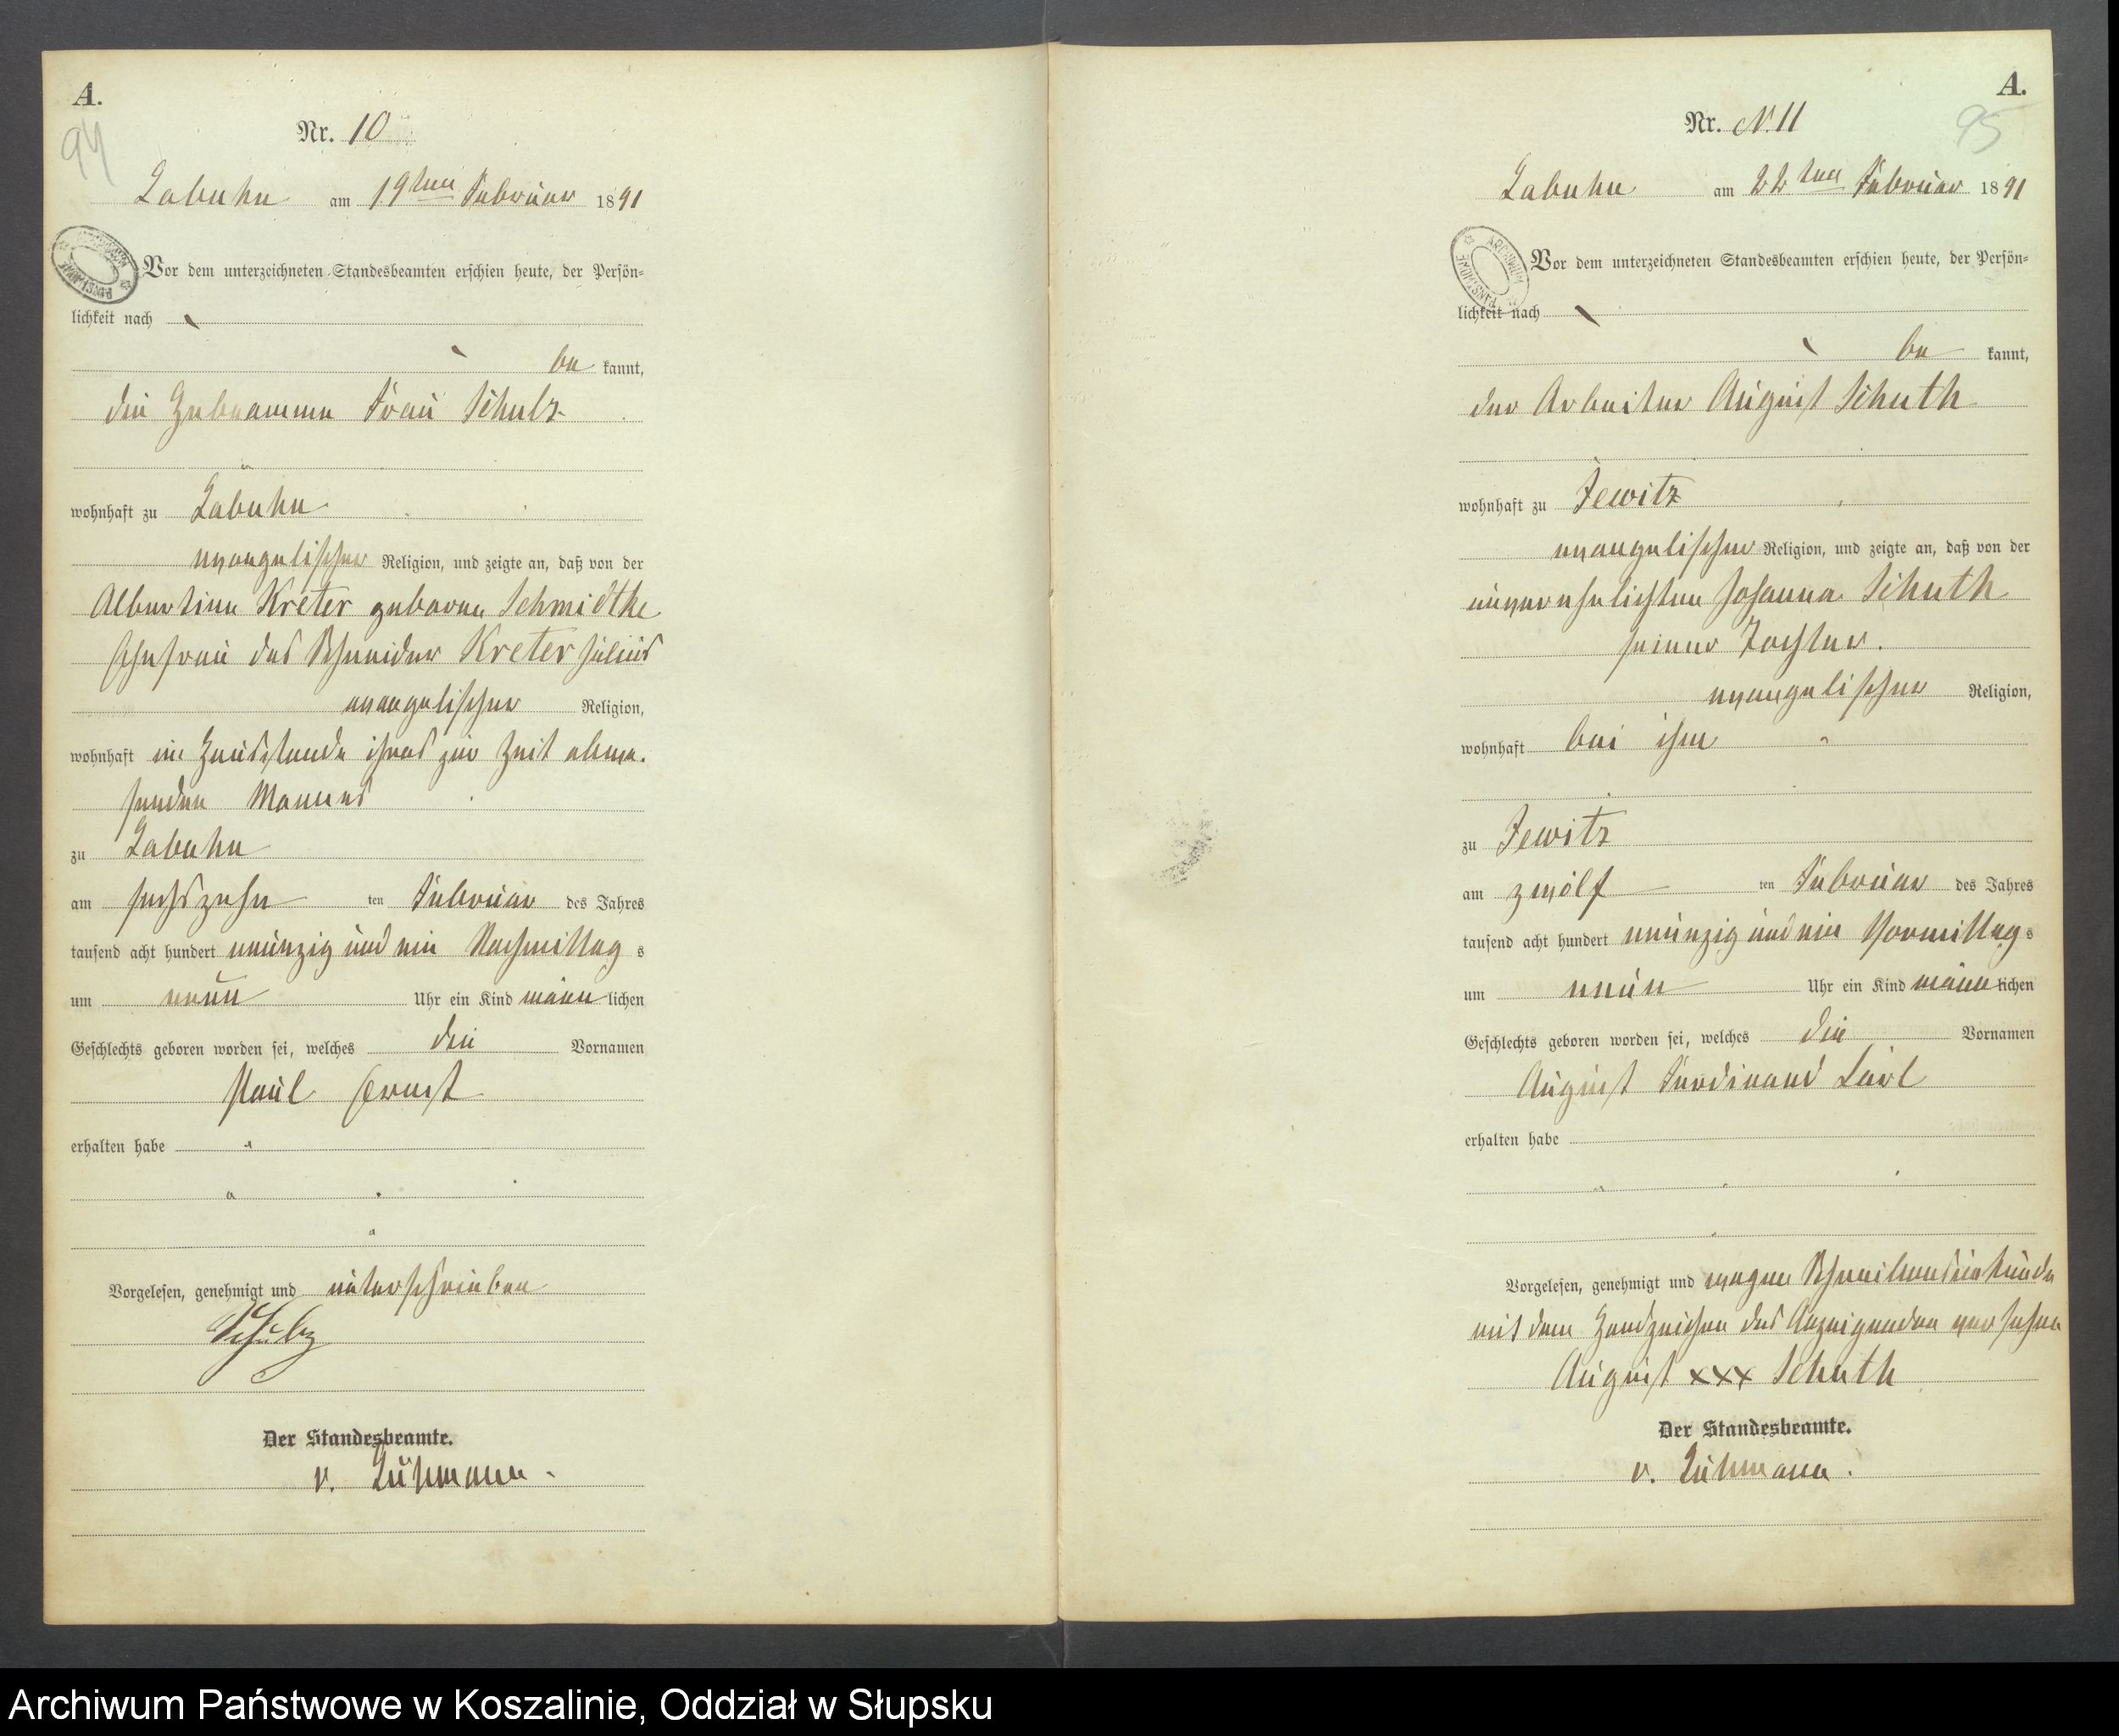 A.
94
Nr. 10
Labuhn am 19ten Februar 1891
Vor dem unterzeichneten Standesbeamten erschien heute, der Persön=
lichkeit nach
be kannt,
die Hebeamme Frau Schulz
wohnhaft zu Labuhn
evangelischer Religion, und zeigte an, daß von der
Albertine Kreter geboren Schmidtke
Ehefrau des Schneider Kreter Julius
evangelischer Religion,
wohnhaft im Hausstande ihres zur Zeit abwe.
senden Mannes
zu Labuhn
am sechszehn ten Februar des Jahres
tausend acht hundert neunzig und ein Nachmittag s
um neun Uhr ein Kind männ lichen
Geschlechts geboren worden sei, welches die Vornamen
Paul Ernst
erhalten habe
Vorgelesen, genehmigt und unterschrieben
Schulz
Der Standesbeamte.
v. Luhmann.
A.
95
Nr. N. 11
Labuhn am 22ten Februar 1891
Vor dem unterzeichneten Standesbeamten erschien heute, der Persön=
lichkeit nach
be kannt,
der Arbeiter August Schuth
wohnhaft zu Jewitz
evangelischer Religion, und zeigte an, daß von der
unverehelichten Johanna Schuth
seiner Tochter.
evangelischer Religion,
wohnhaft bei ihm
zu Jewitz
am zwölf ten Februar des Jahres
tausend acht hundert neunzig und ein Vormittag s
um neun Uhr ein Kind männ lichen
Geschlechts geboren worden sei, welches die Vornamen
August Ferdinand Carl
erhalten habe
Vorgelesen, genehmigt und wegen Schreibensunkunde
mit dem Handzeichen des Anzeigenden versehen
August xxx Schuth
Der Standesbeamte.
v. Luhmann.
Archiwum Państwowe w Koszalinie, Oddział w Słupsku